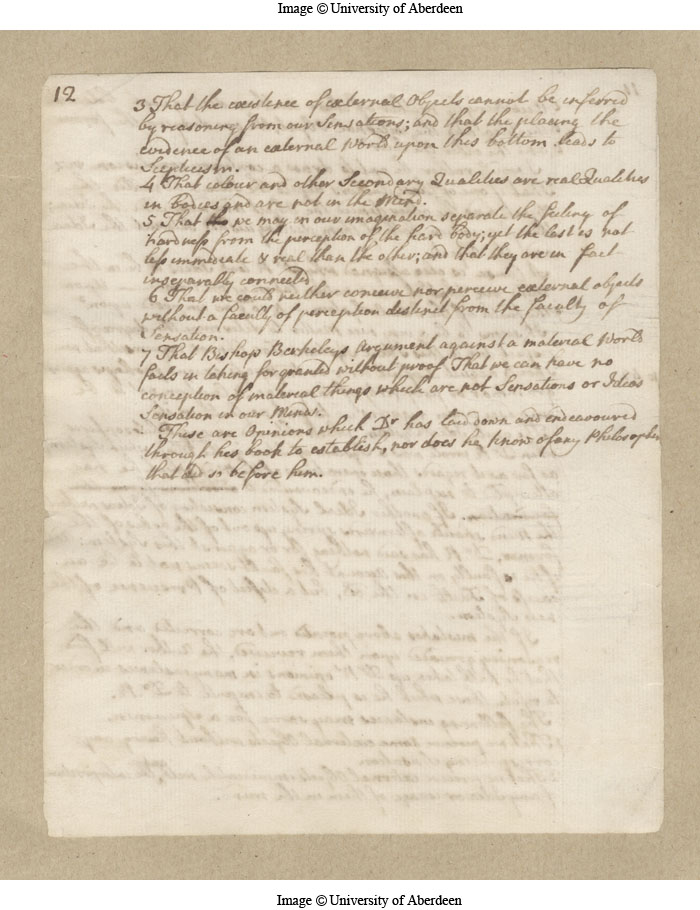 Image © University of Aberdeen
12
3 That the existence of external Objects cannot be inferred
by reasoning from our Sensations; and that the placing the
evidence of an external World upon this bottom leads to
Scepticism.
4 That colour and other Secondary Qualities are real Qualities
in bodies and are not in the Mind.
5 That we may in our imagination separate the feeling of
hardness from the perception of the hard body; yet the last is not
less immediate & real than the other; and that they are in fact
inseparably connected
6 That we could neither conceive nor perceive external objects
without a faculty of perception distinct from the faculty of
Sensation.
7 That Bishop Berkeleys Argument against a material World
fails in taking for granted without proof That we can have no
conception of material things which are not Sensations or Ideas
Sensation in our Minds.
These are Opinions which Dr has laid down and endeavoured
through his book to establish, nor does he know of any Philosopher
that did so before him.
Image © University of Aberdeen